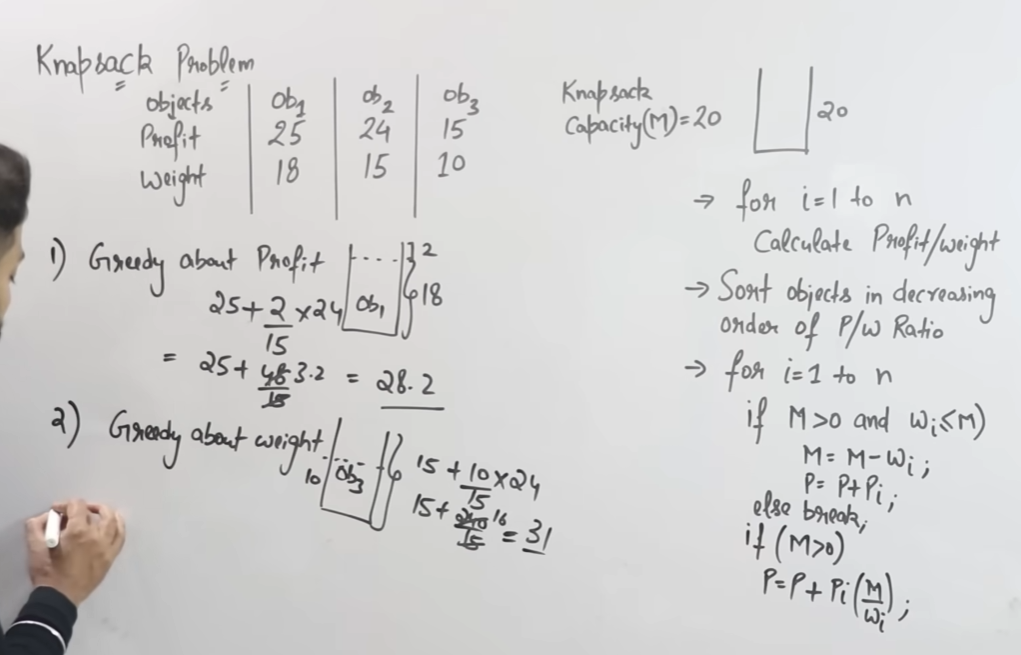 Knapsack Problem
objects ob1 ob2 ob3
Profit 25 24 15
Weight 18 15 10
Knapsack
Capacity(M)=20
20
1) Greedy about Profit
2
18
ob1
25+2/15×24
= 25+48/15 3.2 = 28.2
2) Greedy about weight
10 ob3
15+10/15×24
15+240/15 16 = 31
→ for i=1 to n
Calculate Profit/weight
→ Sort objects in decreasing
order of P/W Ratio
→ for i=1 to n
if M>0 and wi≤M)
M=M-wi;
P=P+Pi;
else break;
if (M>0)
P=P+Pi(M/wi);